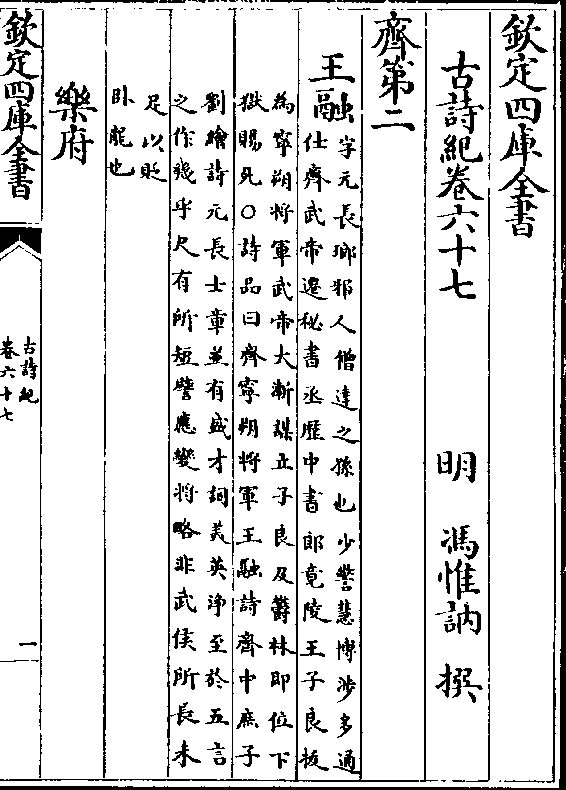 欽定四庫全書
古詩紀卷六十七
明 馮惟訥 撰
齊第二
王融
字元長瑯邪人僧達之孫也少警慧博涉多通
仕齊武帝遷秘書丞歷中書郎竟陵王子良拔
為寜朔將軍武帝大漸謀立子良及鬱林即位下
獄賜死○詩品曰齊寜朔將軍王融詩齊中庶子
劉繪詩元長士章並有盛才詞美英淨至於五言
之作幾乎尺有所短譬應變將略非武侯所長未
足以貶
卧龍也
樂府
欽定四庫全書
古詩紀
卷六十七
一